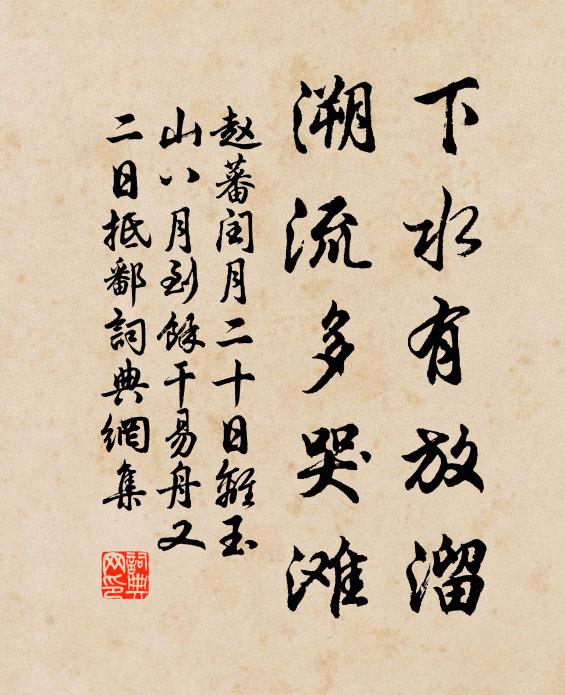 下水有放溜
溯流多哭滩
赵蕃闰月二十日离玉
山八月到馀干易舟又
二日抵鄱词典网集
词典网印